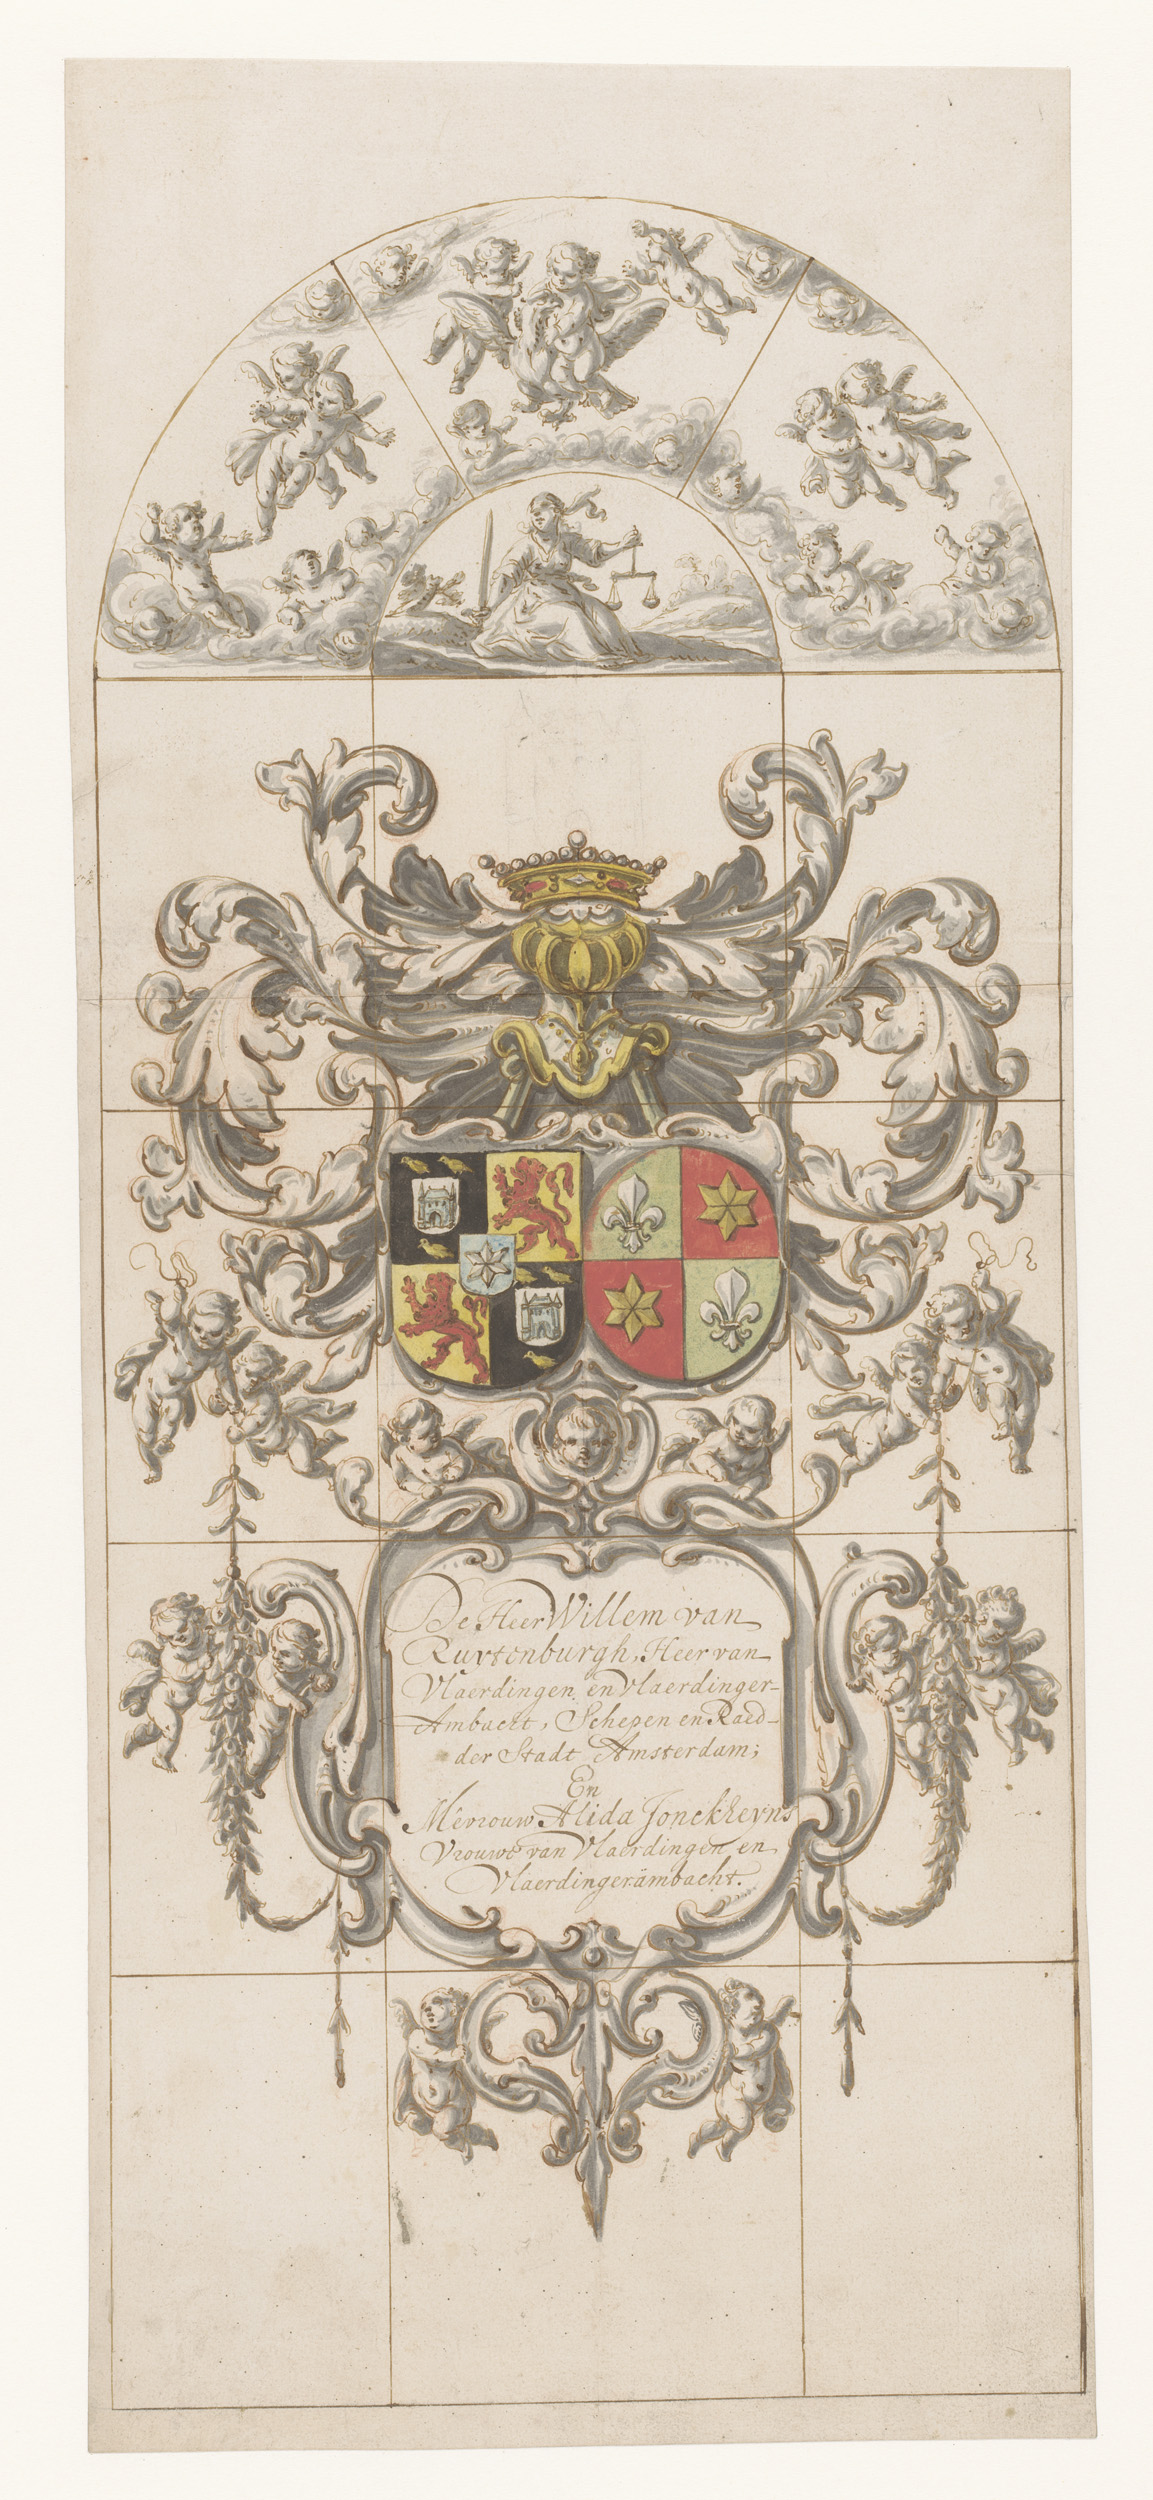 De Heer Willem van
Ruytenburgh, Heer van
Vlaerdingen en Vlaerdinger-
Ambacht, Schepen en Raed-
der Stadt Amsterdam;
En
Mevrouw Alida Jonckheyns
Vrouwe van Vlaerdingen en
Vlaerdingerämbacht.